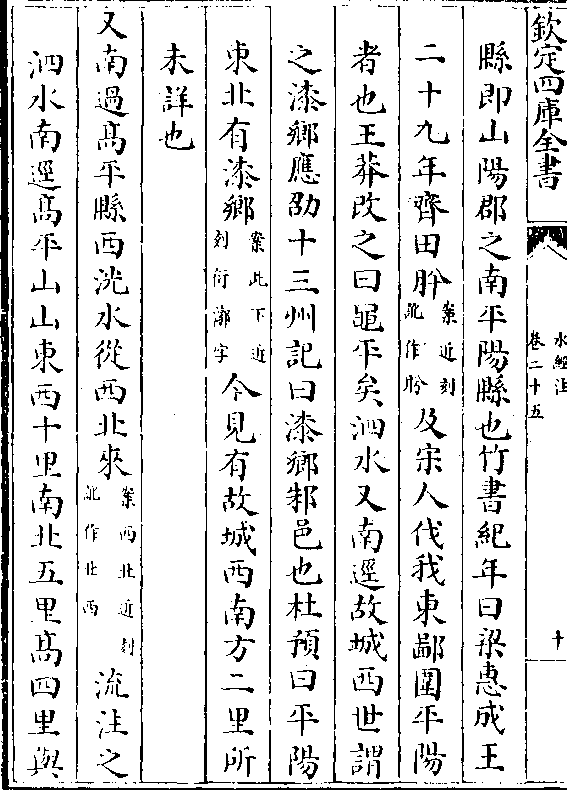 欽定四庫全書
水經注
卷二十五
十
縣即山陽郡之南平陽縣也竹書紀年曰梁惠成王
二十九年齊田肸案近刻訛作肹及宋人伐我東鄙圍平陽
者也王莽改之曰黽平矣泗水又南逕故城西世謂
之漆鄉應劭十三州記曰漆鄉邾邑也杜預曰平陽
東北有漆鄉案此下近刻衍漷字今見有故城西南方二里所
未詳也
又南過髙平縣西洸水從西北來案西北近刻訛作北西流注之
泗水南逕髙平山山東西十里南北五里髙四里與